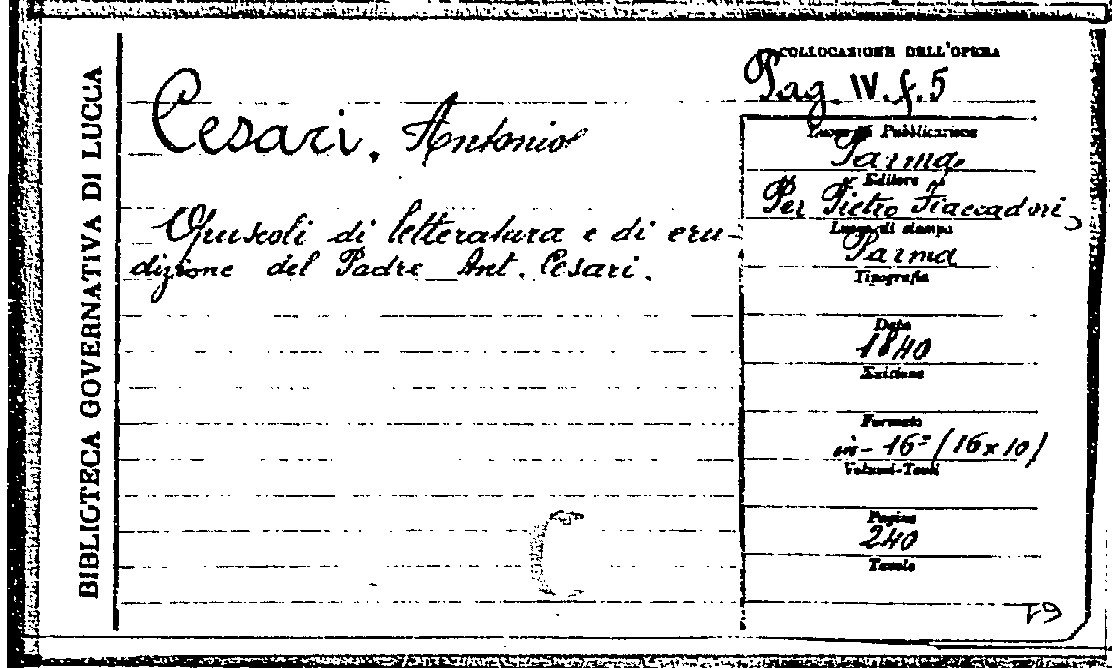 BIBLIOTECA GOVERNATIVA DI LUCCA
Cesari, Antonio
Opuscoli di letteratura e di eru-
dizione del Padre Ant. Cesari.
COLLOCAZIONE DELL'OPERA
Pag. IV. f. 5
Luogo di Pubblicazione
Parma
Editore
Per Pietro Fiaccadori
Luogo di stampa
Parma
Tipografia
Data
1840
Edizione
Formato
in-16° (16x10)
Volumi-Tomi
Pagine
240
Tavole